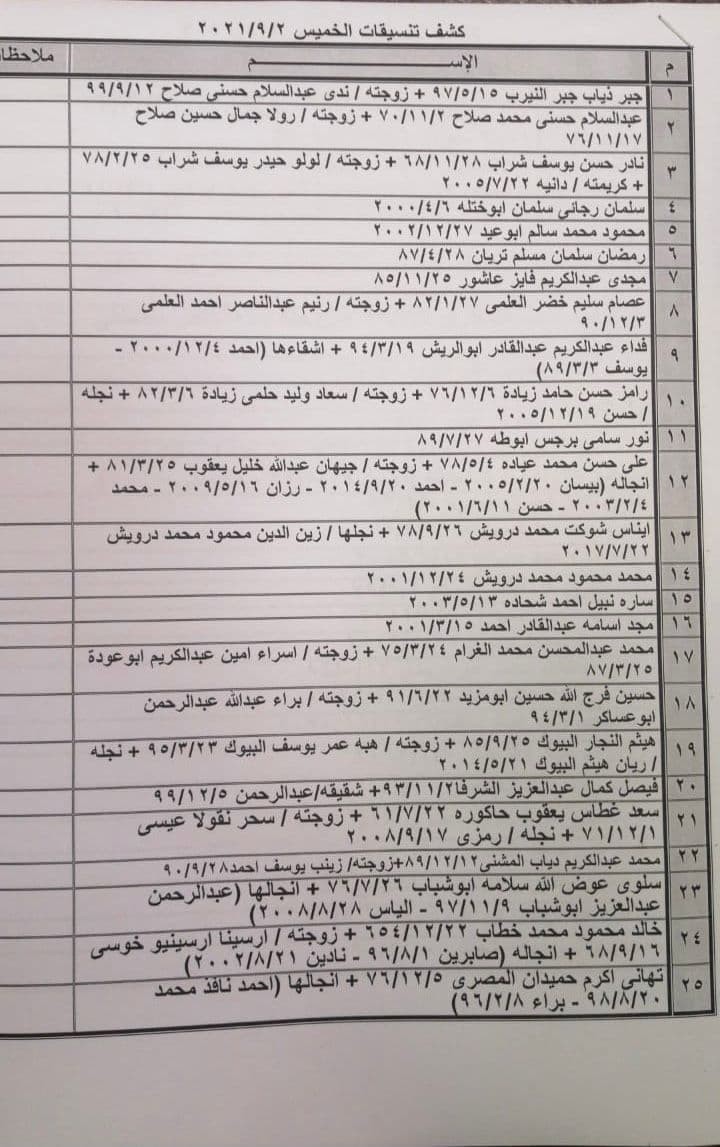 كشف تنسيقات الخميس ٢٠٢١/٩/٢
م الإســـم ملاحظا
١ جبر ذياب جبر النيرب ٩٧/٥/١٥ + زوجته / ندى عبدالسلام حسنى صلاح ٩٩/٩/١٢
٢ عبدالسلام حسنى محمد صلاح ٧٠/١١/٢ + زوجته / رولا جمال حسين صلاح
٧٦/١١/١٧
٣ نادر حسن يوسف شراب ٦٨/١١/٢٨ + زوجته / لولو حيدر يوسف شراب ٧٨/٢/٢٥
+ كريمته / دانيه ٢٠٠٥/٧/٢٢
٤ سلمان رجائى سلمان ابوختله ٢٠٠٠/٤/٦
٥ محمود محمد سالم ابوعيد ٢٠٠٢/١٢/٢٧
٦ رمضان سلمان مسلم تريان ٨٧/٤/٢٨
٧ مجدى عبدالكريم فايز عاشور ٨٥/١١/٢٥
٨ عصام سليم خضر العلمى ٨٢/١/٢٧ + زوجته / رنيم عبدالناصر احمد العلمى
٩٠/١٢/٣
٩ فداء عبدالكريم عبدالقادر ابوالريش ٩٤/٣/١٩ + اشقاءها (احمد ٢٠٠٠/١٢/٤ -
يوسف ٨٩/٣/٣)
١٠ رامز حسن حامد زيادة ٧٦/١٢/٦ + زوجته / سعاد وليد حلمى زيادة ٨٢/٣/٦ + نجله
/ حسن ٢٠٠٥/١٢/١٩
١١ نور سامى برجس ابوطه ٨٩/٧/٢٧
١٢ على حسن محمد عياده ٧٨/٥/٤ + زوجته / جيهان عبدالله خليل يعقوب ٨١/٣/٢٥ +
انجاله (بيسان ٢٠٠٥/٢/٢٠ - احمد ٢٠١٤/٩/٢٠ - رزان ٢٠٠٩/٥/١٦ - محمد
٢٠٠٣/٢/٤ - حسن ٢٠٠١/٦/١١)
١٣ ايناس شوكت محمد درويش ٧٨/٩/٢٦ + نجلها / زين الدين محمود محمد درويش
٢٠١٧/٧/٢٢
١٤ محمد محمود محمد درويش ٢٠٠١/١٢/٢٤
١٥ ساره نبيل احمد شحاده ٢٠٠٣/٥/١٣
١٦ مجد اسامه عبدالقادر احمد ٢٠٠١/٣/١٥
١٧ محمد عبدالمحسن محمد الغرام ٧٥/٣/٢٤ + زوجته / اسراء امين عبدالكريم ابوعودة
٨٧/٣/٢٥
١٨ حسين فرج الله حسين ابومزيد ٩١/٦/٢٢ + زوجته / براء عبدالله عبدالرحمن
ابوعساكر ٩٤/٣/١
١٩ هيثم النجار البيوك ٨٥/٩/٢٥ + زوجته / هبه عمر يوسف البيوك ٩٥/٣/٢٣ + نجله
/ ريان هيثم البيوك ٢٠١٤/٥/٢١
٢٠ فيصل كمال عبدالعزيز الشرفا ٩٣/١١/٢+ شقيقه/عبدالرحمن ٩٩/١٢/٥
٢١ سعد غطاس يعقوب حاكوره ٦١/٧/٢٢ + زوجته / سحر نقولا عيسى
٧١/١٢/١ + نجله / رمزى ٢٠٠٨/٩/١٧
٢٢ محمد عبدالكريم دياب المشنى ٨٩/١٢/١٢+زوجته/ زينب يوسف احمد ٩٠/٩/٢٨
٢٣ سلوى عوض الله سلامه ابوشباب ٧٦/٧/٢٦ + انجالها (عبدالرحمن
عبدالعزيز ابوشباب ٩٧/١١/٩ - الياس ٢٠٠٨/٨/٢٨)
٢٤ خالد محمود محمد خطاب ٦٥٤/١٢/٢٢ + زوجته / ارسينا ارسينيو خوسى
٦٨/٩/١٦ + انجاله (صابرين ٩٦/٨/١ - نادين ٢٠٠٢/٨/٢١)
٢٥ تهانى اكرم حميدان المصرى ٧٦/١٢/٥ + انجالها (احمد نافذ محمد
٩٨/٨/٢٠ - براء ٩٦/٢/٨)